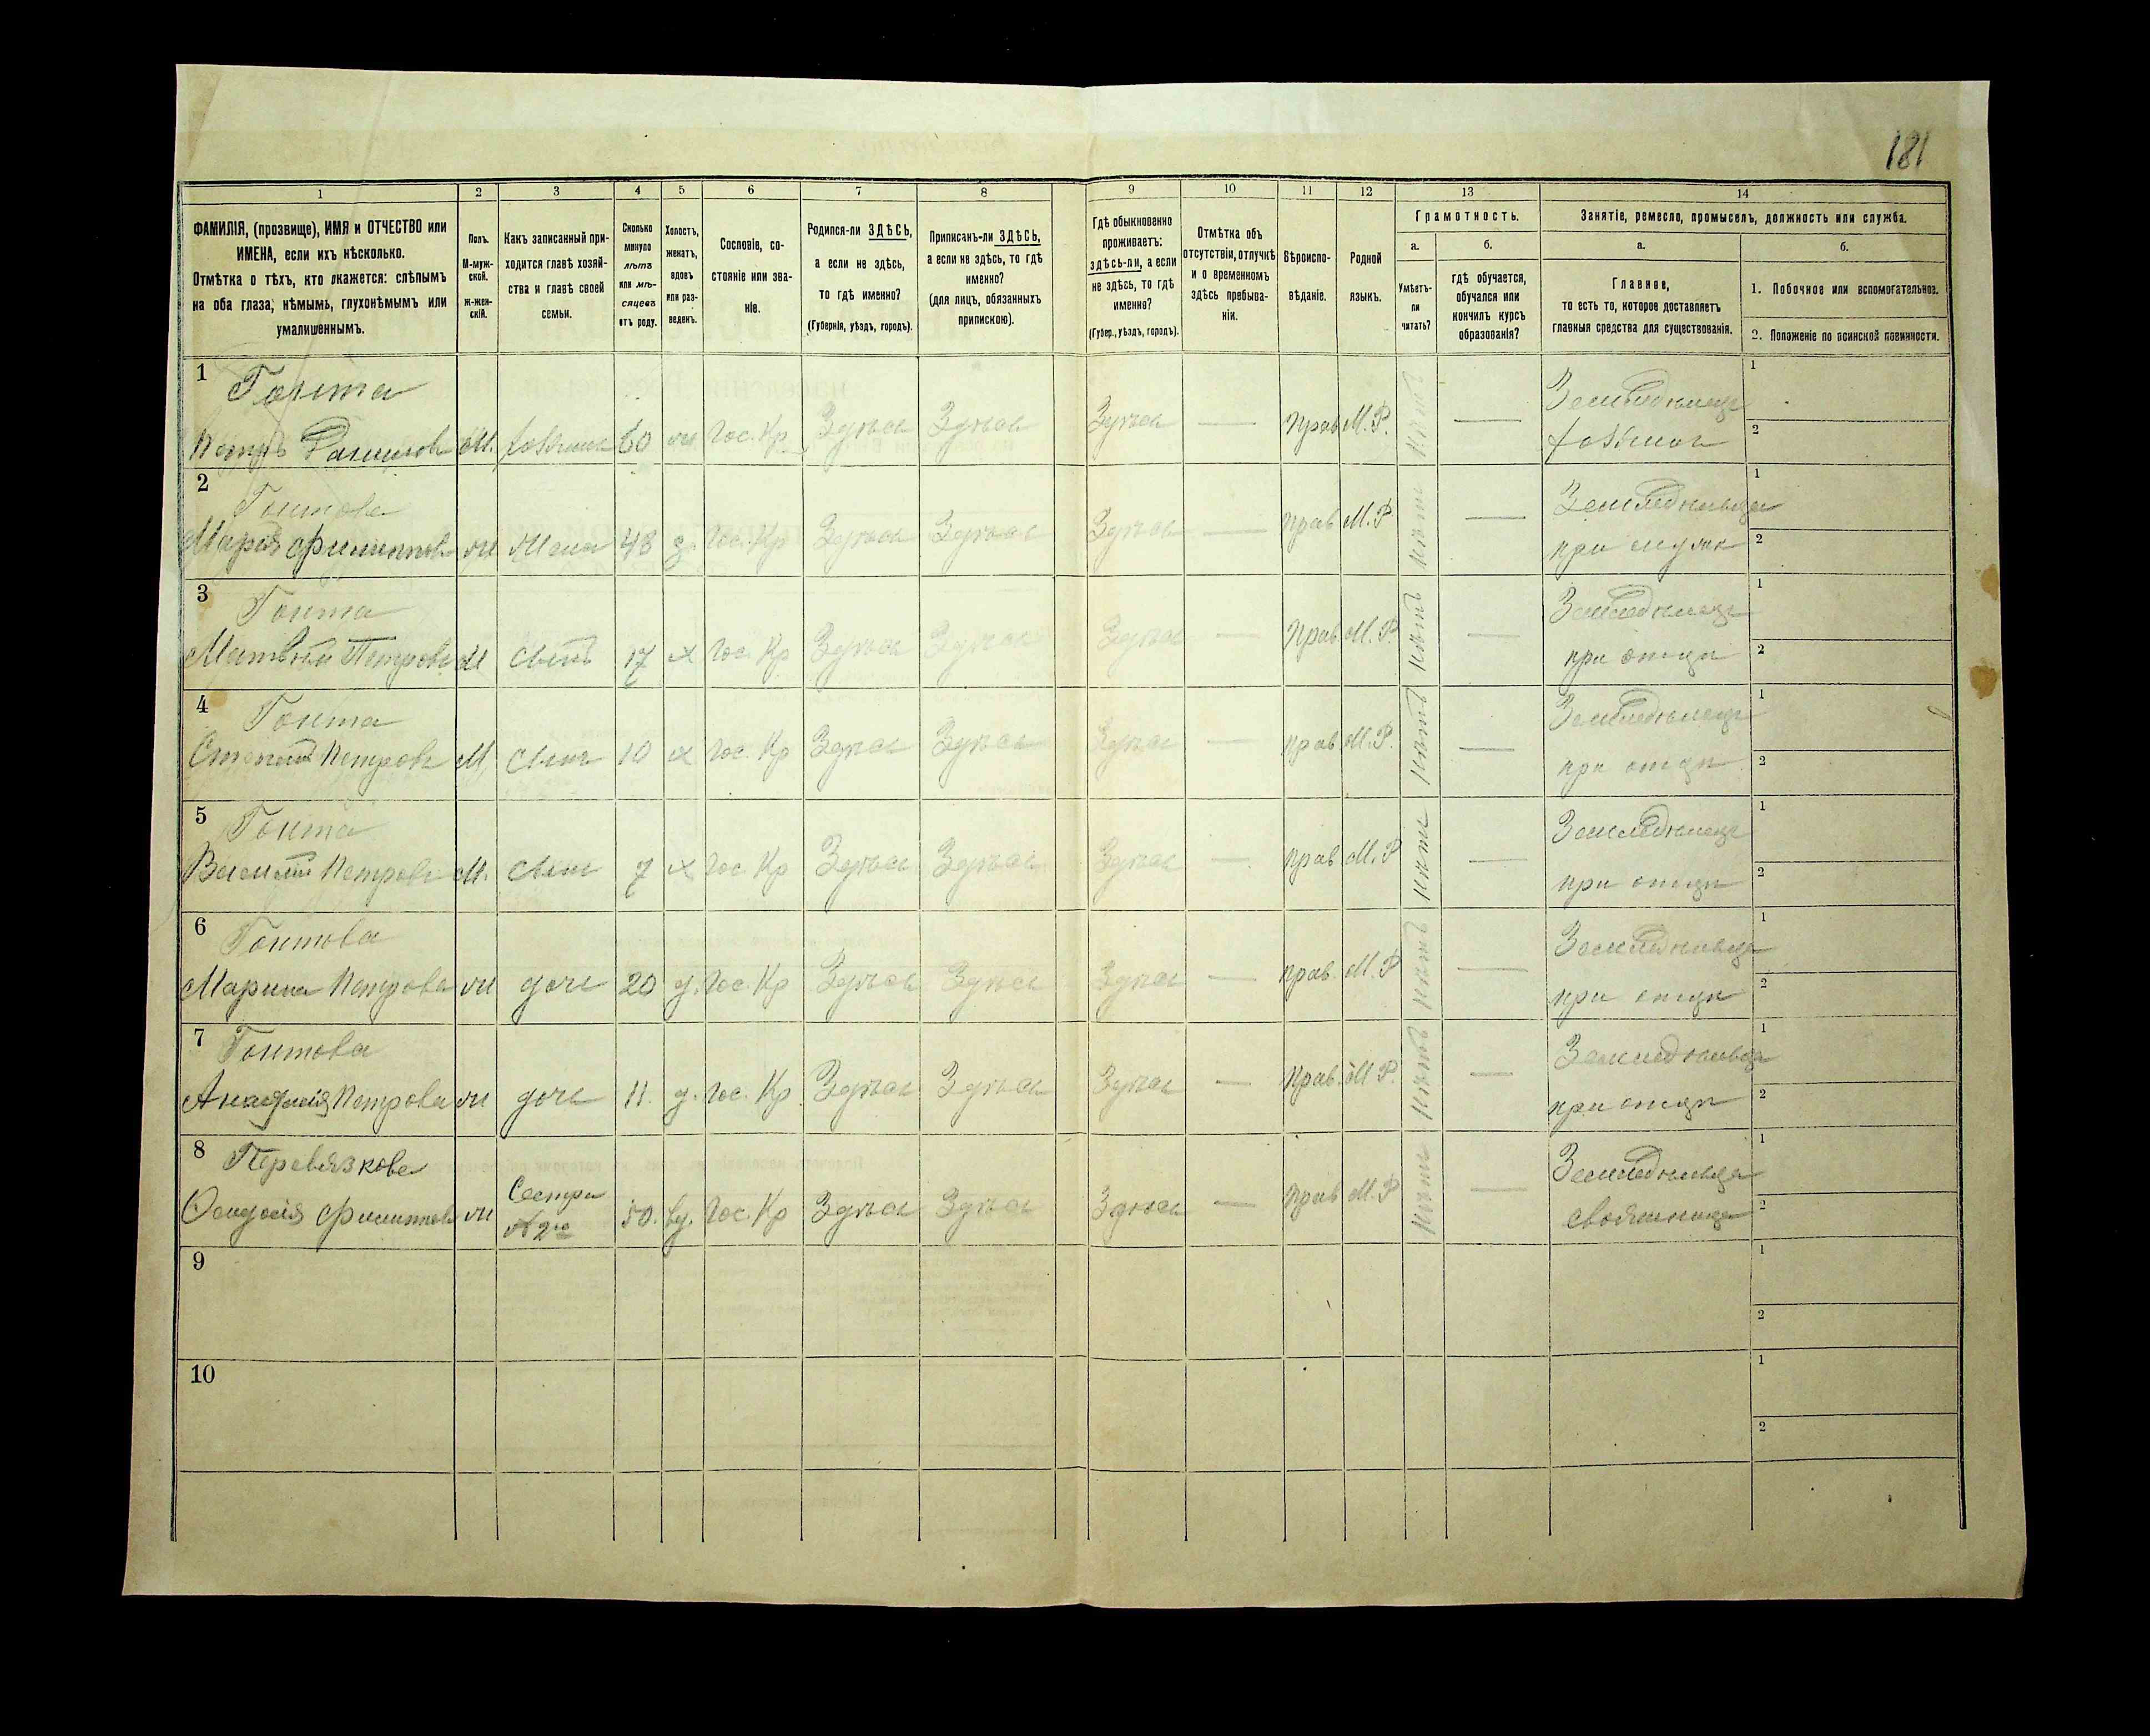 181
1
2
3
4
5
6
7
8
9
10
11
12
13
14
ФАМИЛІЯ, (прозвище), ИМЯ и ОТЧЕСТВО или
ИМЕНА, если ихъ нѣсколько.
Отмѣтка о тѣхъ, кто окажется: слѣпымъ
на оба глаза, нѣмымъ, глухонѣмымъ или
умалишеннымъ.
Полъ.
М-муж-
ской.
ж-жен-
скій.
Какъ записанный при-
ходится главѣ хозяй-
ства и главѣ своей
семьи.
Сколько
минуло
лѣтъ
или мѣ-
сяцевъ
отъ роду.
Холостъ,
женатъ,
вдовъ
или раз-
веденъ.
Сословіе, со-
стояніе или зва-
ніе.
Родился-ли ЗДѢСЬ,
а если не здѣсь,
то гдѣ именно?
(Губернія, уѣздъ, городъ).
Приписанъ-ли ЗДѢСЬ,
а если не здѣсь, то гдѣ
именно?
(для лицъ, обязанныхъ
припискою).
Гдѣ обыкновенно
проживаетъ:
здѣсь-ли, а если
не здѣсь, то гдѣ
именно?
(Губер., уѣздъ, городъ).
Отмѣтка объ
отсутствіи, отлучкѣ
и о временномъ
здѣсь пребыва-
ніи.
Вѣроиспо-
вѣданіе.
Родной
языкъ.
Грамотность.
а.
б.
Умѣетъ-
ли
читать?
гдѣ обучается,
обучался или
кончилъ курсъ
образованія?
Занятіе, ремесло, промыселъ, должность или служба.
а.
б.
Главное,
то есть то, которое доставляетъ
главныя средства для существованія.
1. Побочное или вспомогательное.
2. Положеніе по воинской повинности.
1 Гонта
Петръ Данилов М. хозяинъ 60 ж Гос. Кр. Здѣсь Здѣсь Здѣсь — Прав М. Р. нѣтъ — Земледѣлецъ 1
хозяинъ 2
2 Гонтова
Мария Филиппов ж Жена 48 з. Гос. Кр Здѣсь Здѣсь Здѣсь — прав М. Р нѣтъ — Земледѣлица 1
при мужѣ 2
3 Гонта
Матвѣй Петровъ М Сынъ 17 х Гос. Кр Здѣсь Здѣсь Здѣсь — Прав М. Р. нѣтъ — Земледѣлецъ 1
при отцѣ 2
4 Гонта
Петровъ М Сынъ 10 х Гос. Кр Здѣсь Здѣсь Здѣсь — прав М. Р. нѣтъ — Земледѣлецъ 1
при отцѣ 2
5 Гонта
Василій Петровъ М. Сынъ 7 х Гос. Кр Здѣсь Здѣсь Здѣсь — прав М. Р нѣтъ — Земледѣлецъ 1
при отцѣ 2
6 Гонтова
Марина Петрова ж дочь 20 д. Гос. Кр Здѣсь Здѣсь Здѣсь — прав. М. Р нѣтъ — Земледѣлица 1
при отцѣ 2
7 Гонтова
Петрова ж дочь 11. д. Гос. Кр Здѣсь Здѣсь Здѣсь — Прав. М Р. нѣтъ — Земледѣлица 1
при отцѣ 2
8 Перевязкова
Филиппов ж Сестра 50. вд. Гос. Кр Здѣсь Здѣсь Здѣсь — прав М. Р нѣтъ — Земледѣлица 1
№ 2го
2
9
1
2
10
1
2